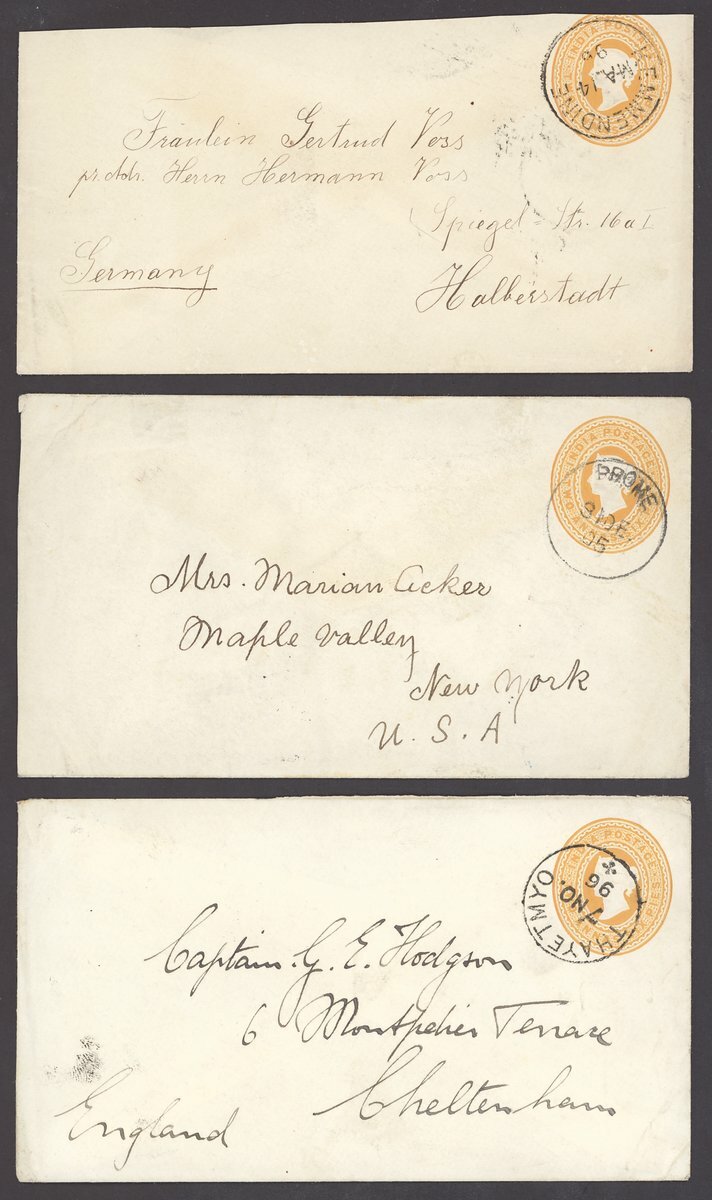 INDIA POSTAGE
KEMMENDINE
MA 14
95
Fräulein Gertrud Voss
pr. Adr. Herrn Hermann Voss
Spiegel-Str. 16a I
Germany
Halberstadt
INDIA POSTAGE
PROME
31 DE
95
Mrs. Marian Acker
Maple Valley
New York
U. S. A
INDIA POSTAGE
THAYETMYO
7 NO.
96
Captain. G. E. Hodgson
6 Montpelier Terrace
Cheltenham
England